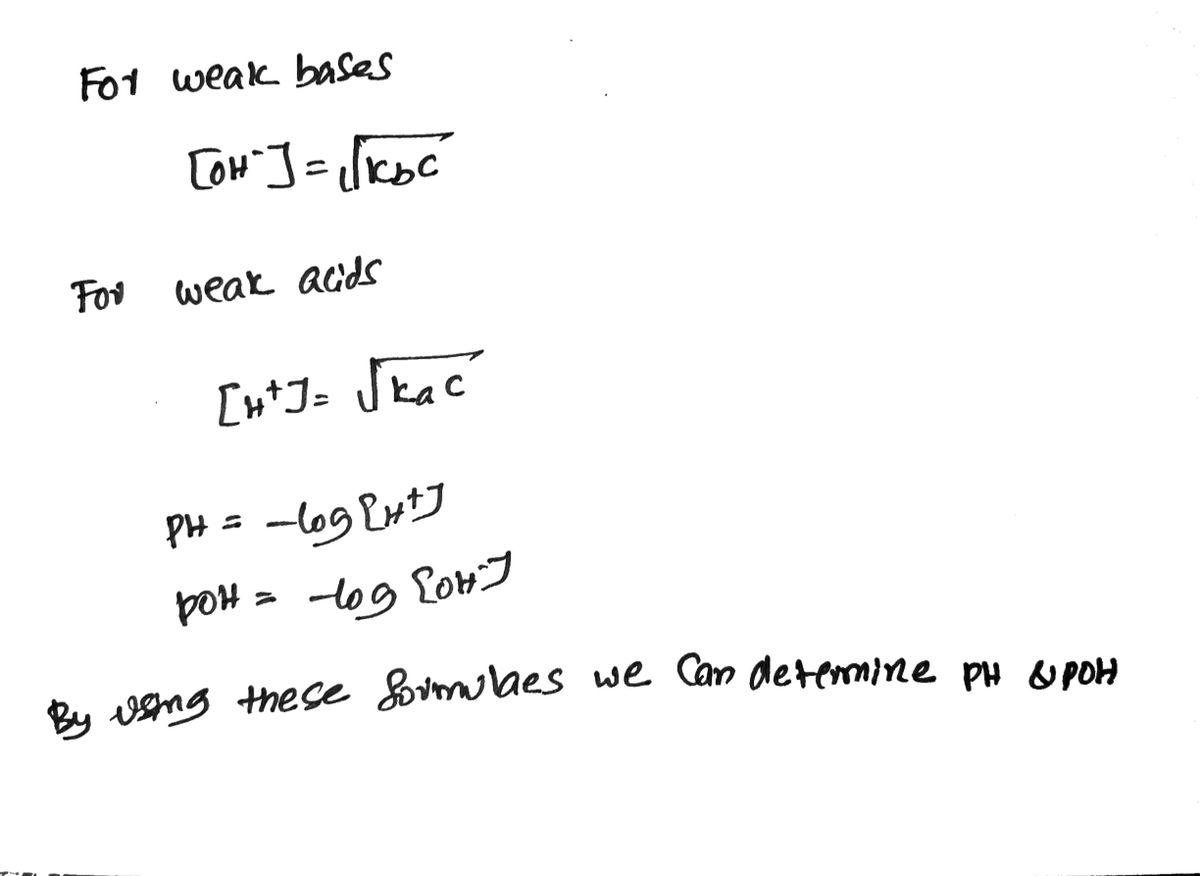 For weak bases
[OH⁻] = √kbC
For weak acids
[H⁺] = √kac
PH = -log [H⁺]
pOH = -log [OH⁻]
By using these formulaes we can determine PH & POH